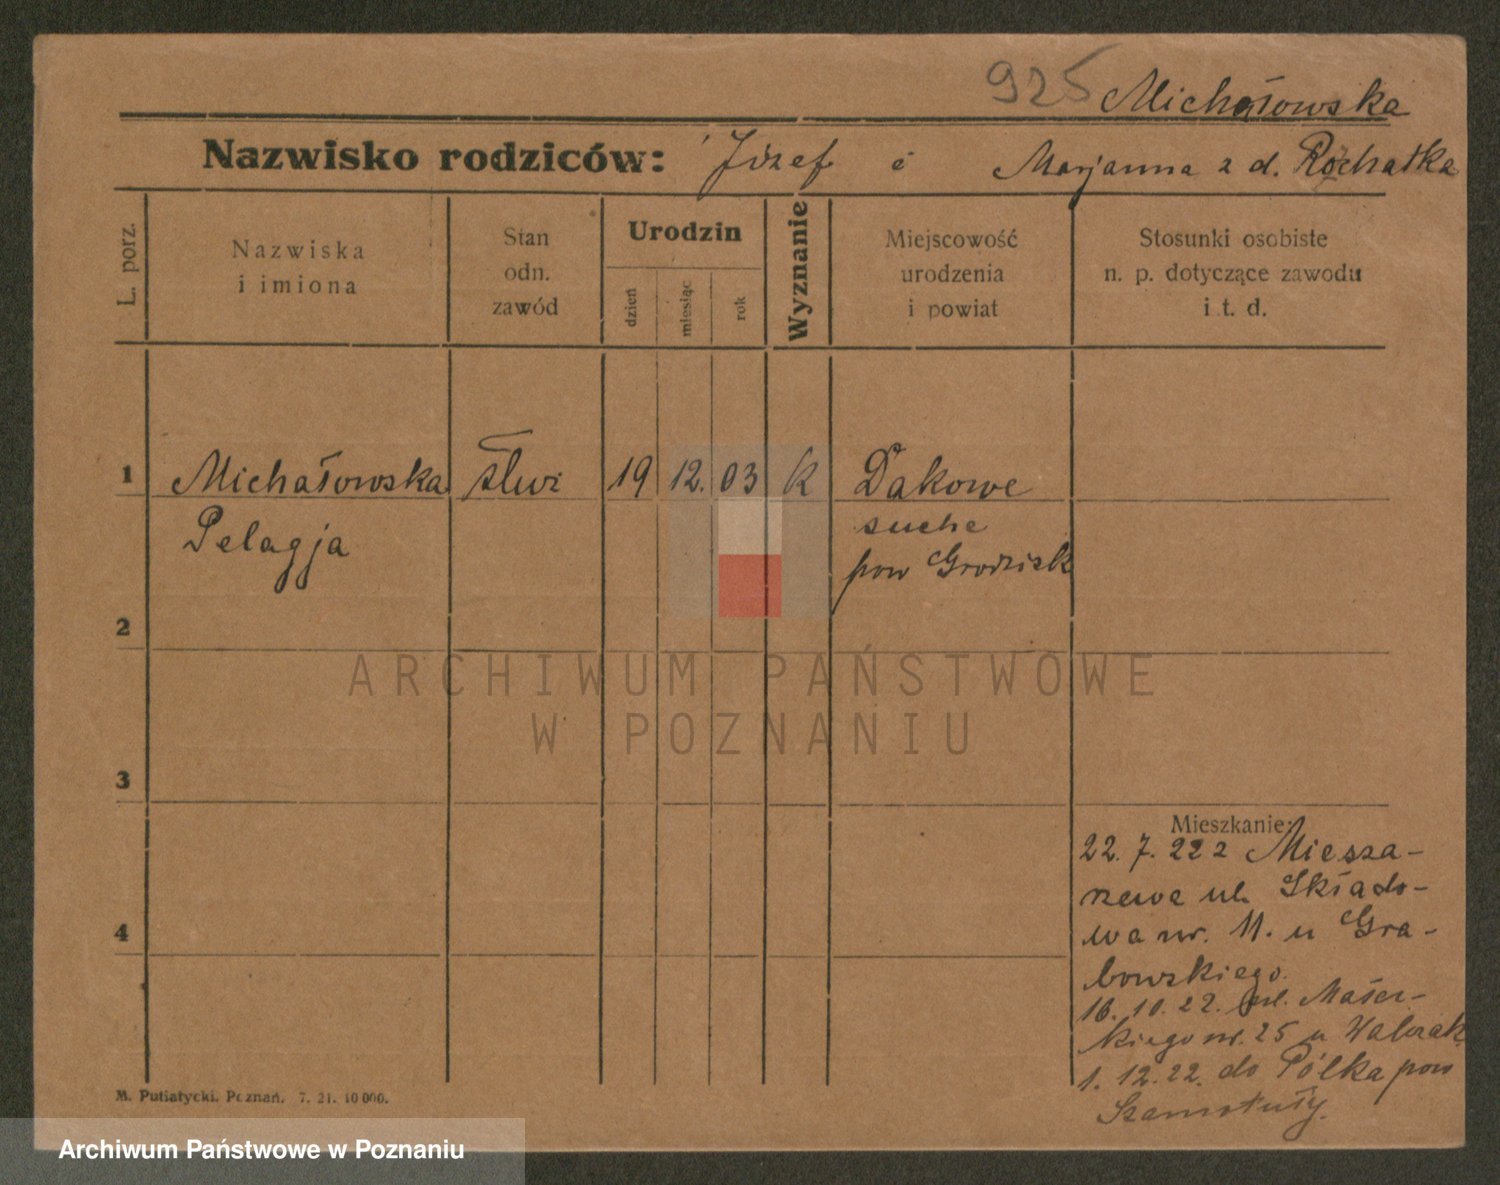 925 Michałowska
Nazwisko rodziców: Józef i Marjanna z d. Rochatka
L. porz.
Nazwiska
i imiona
Stan
odn.
zawód
Urodzin
dzień
miesiąc
rok
Wyznanie
Miejscowość
urodzenia
i powiat
Stosunki osobiste
n. p. dotyczące zawodu
i t. d.
1 Michałowska 19 12. 03 K Dakowe
Pelagja suche
pow Grodzisk
2
ARCHIWUM PAŃSTWOWE
W POZNANIU
3
Mieszkanie:
22. 7. 22 z Miesza-
ul. Składo-
wa nr. 11. u Gra-
bowskiego.
16. 10. 22. ul.
kiego nr. 25 u Walczak
1. 12. 22. do Pólka pow
Szamotuły.
4
M. Putiatycki, Poznań. 7. 21. 10 000.
Archiwum Państwowe w Poznaniu